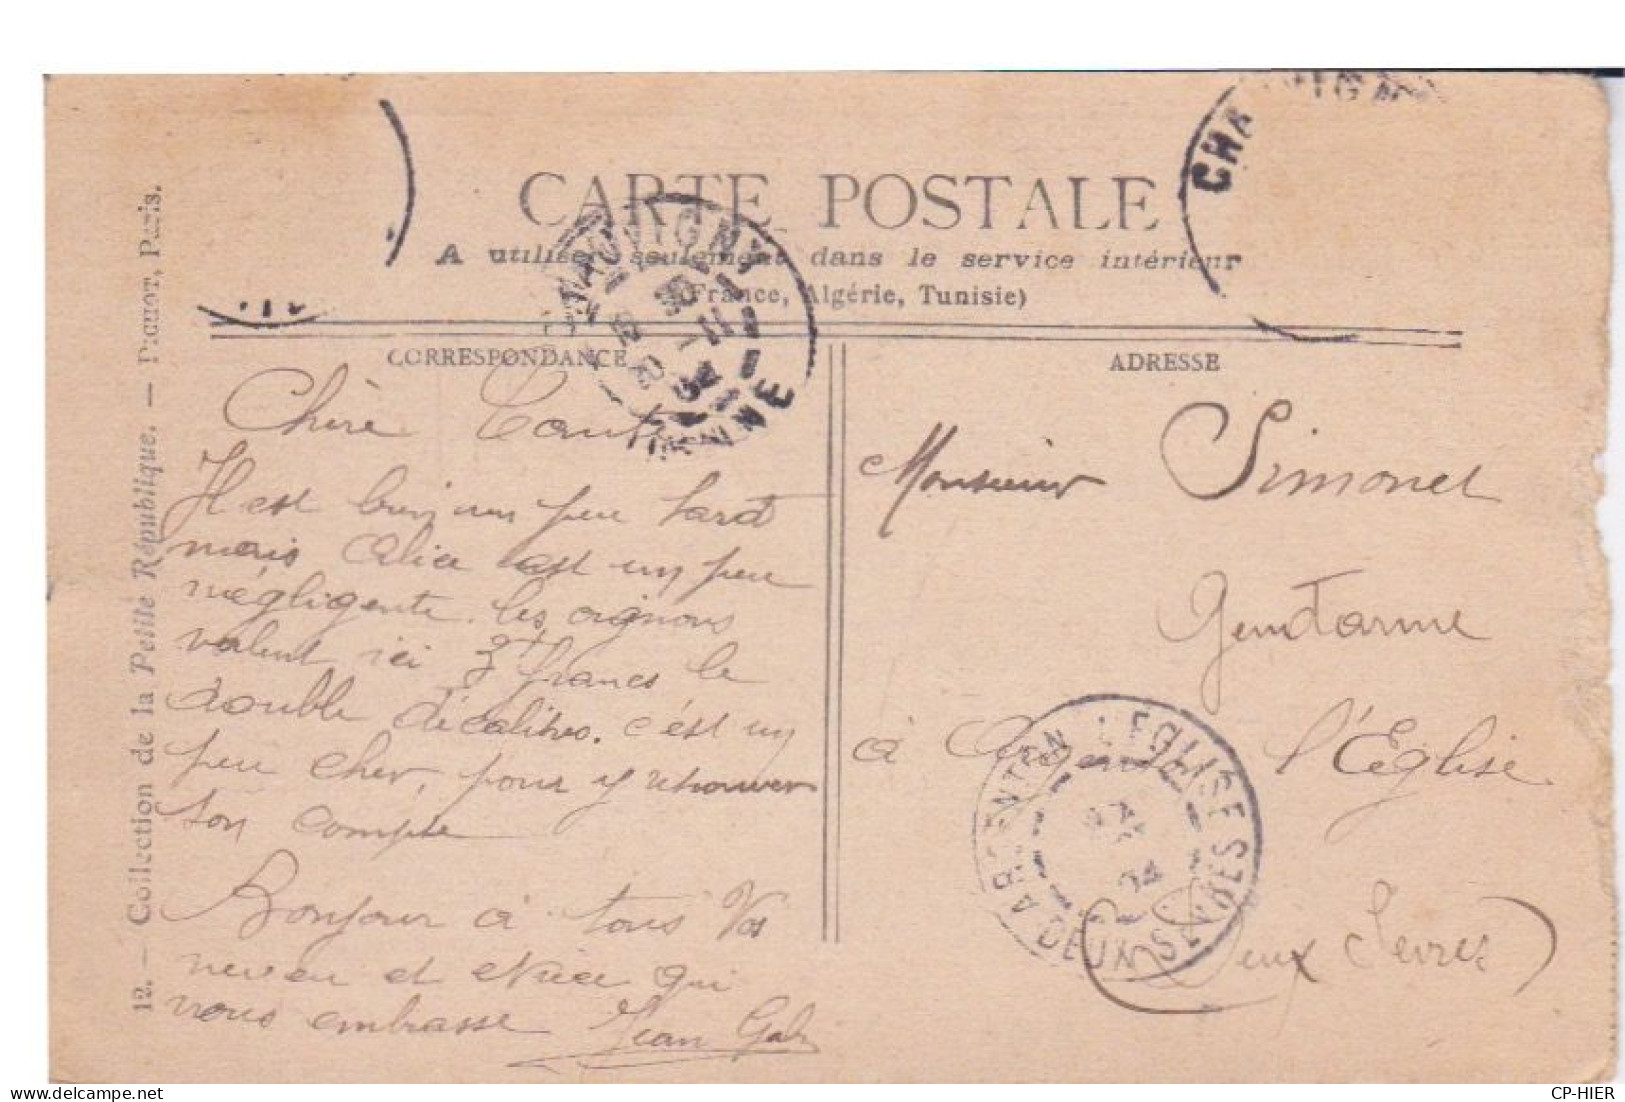 CARTE POSTALE
A utiliser seulement dans le service intérieur
(France, Algérie, Tunisie)
CORRESPONDANCE
ADRESSE
12. — Collection de la Petite République. — PICQUOT, Paris.
Chère Tante
Il est bien un peu tard
mais Alice est un peu
négligente. les oignons
valent ici 3f francs le
double décalitres. c'est un
peu cher, pour y retrouver
son compte
Bonjour à tous Vos
neveu et Nièce qui
vous embrasse Jean
Monsieur Simonet
Gendarme
à Argenton l'Eglise
(Deux Sevres)
CHAUVIGNY
VIENNE
04
CHAUVIGNY
ARGENTON L'EGLISE
DEUX SEVRES
04
CP-HIER